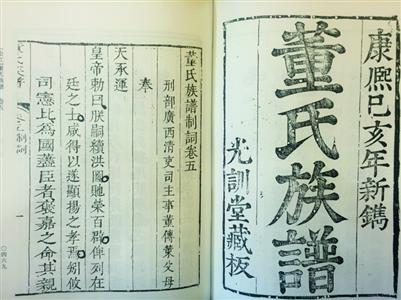 康熙己亥年新鐫
董氏族譜
光訓堂藏板
董氏族譜制詞卷五
刑部廣西清吏司主事董傳策父母
奉
天承運
皇帝勅曰朕嗣續洪圖馳榮百辟俾列在
廷之士咸得以遂顯揚之孝焉矧攸
司憲比為國藎臣者褒嘉之命其親
卷五制詞
一
〇四六九